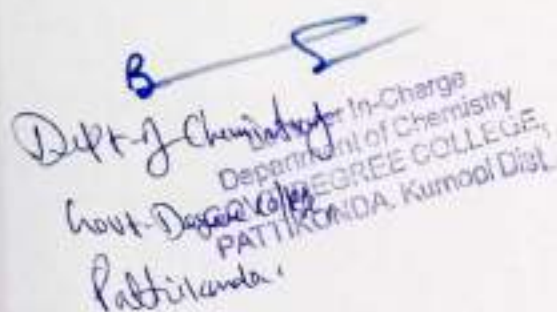 B
Dept. of Chemistry
Govt. Degree College
Pattikonda.
In-Charge
Department of Chemistry
DEGREE COLLEGE,
PATTIKONDA, Kurnool Dist.